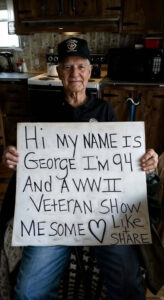 Hi MY NAME IS
GEORGE I'M 94
AND A WW II
VETERAN SHOW
ME SOME ♡ LIKE
& SHARE